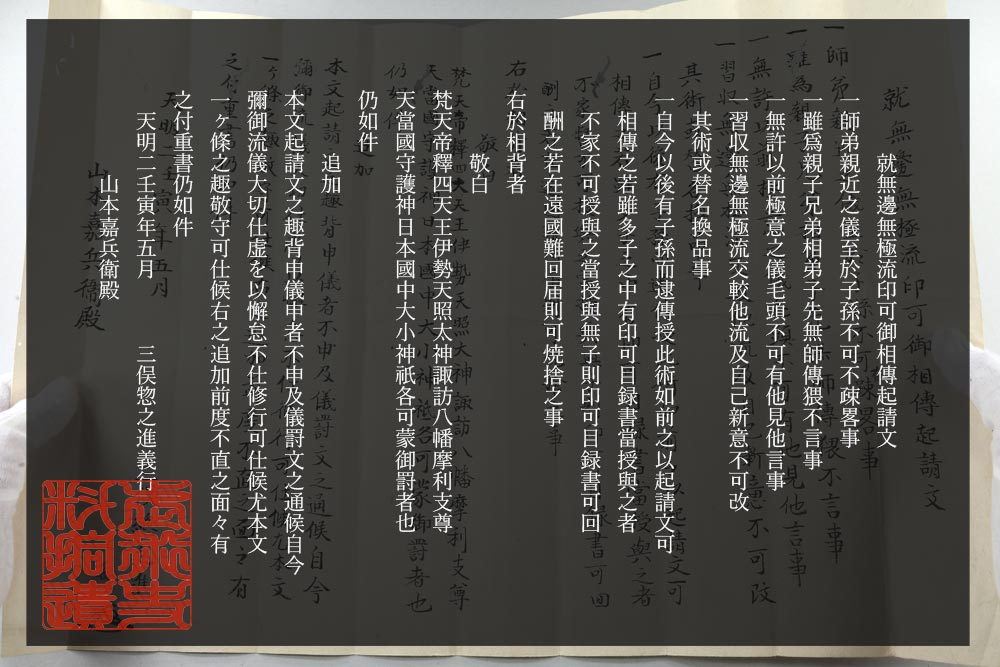 就無邊無極流印可御相傳起請文
一師弟親近之儀至於子孫不可不疎畧事
一雖爲親子兄弟相弟子先無師傳猥不言事
一無許以前極意之儀毛頭不可有他見他言事
一習収無邊無極流交較他流及自己新意不可改
其術或替名換品事
一自今以後有子孫而逮傳授此術如前之以起請文可
相傳之若雖多子之中有印可目録書當授與之者
不家不可授與之當授與無子則印可目録書可回
酬之若在遠國難回届則可燒捨之事
右於相背者
敬白
梵天帝釋四天王伊勢天照太神諏訪八幡摩利支尊
天當國守護神日本國中大小神祇各可蒙御罸者也
仍如件
追加
本文起請文之趣背申儀申者不申及儀罸文之通候自今
彌御流儀大切仕虚を以懈怠不仕修行可仕候尤本文
一ヶ條之趣敬守可仕候右之追加前度不直之面々有
之付重書仍如件
天明二壬寅年五月　三俣惣之進義行
山本嘉兵衞殿